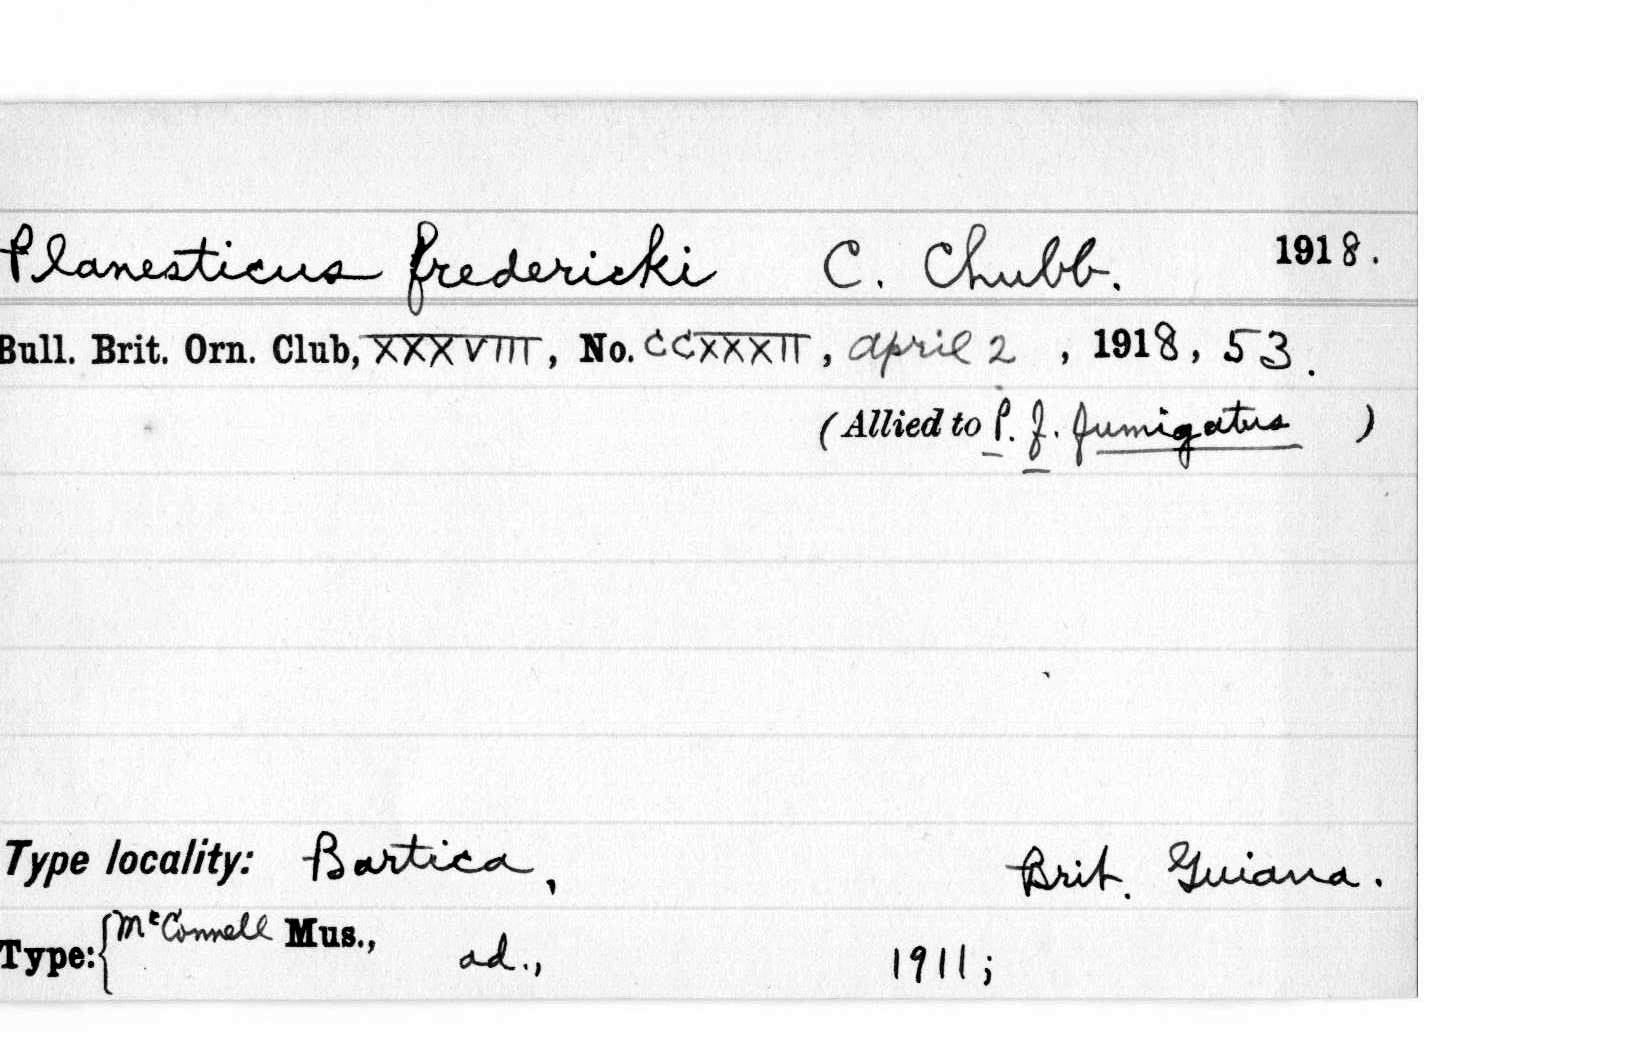 Planesticus fredericki C. Chubb. 1918.
Bull. Brit. Orn. Club, XXXVIII, No. CCXXXII, April 2, 1918, 53.
(Allied to P. f. fumigatus)
Type locality: Bartica, Brit. Guiana.
Type: { McConnell Mus., ad., 1911;